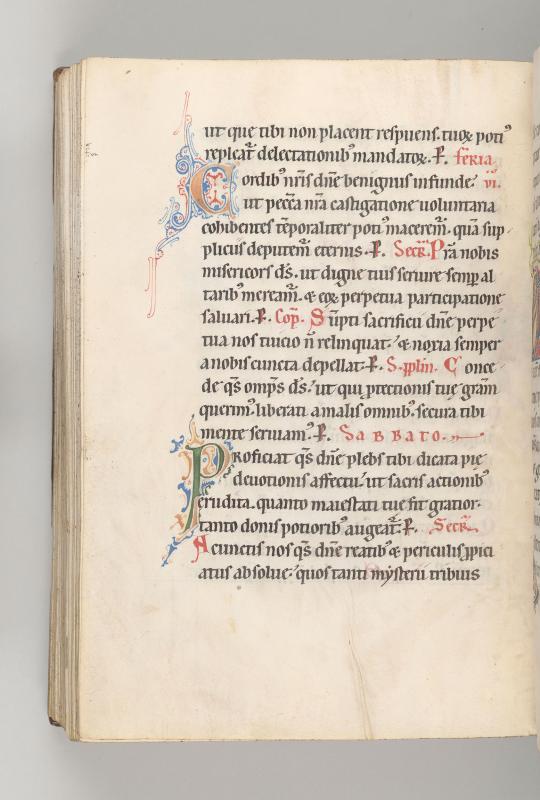 ut que tibi non placent respuens. tuoꝝ poti᷒
repleat̄ delectationib᷒ mandatoꝝ. P̄. feria
Cordib᷒ nr̄is dn̄e benignus infunde. vi.
ut pecc̄a nr̄a castigatione voluntaria
cohibentes tēporaliter poti᷒ macerem̄. quā sup
pliciis deputem̄ eternis. P̄. Secr̄. Pr̄a nobis
misericors d̄s. ut digne tuis seruire semꝑ al
tarib᷒ meream̄. & eoꝝ perpetua participatione
saluari. P̄. Cop̄. Sūpti sacrificii dn̄e perpe
tua nos tuicio n̄ relinquat. & noxia semper
a nobis cuncta depellat. P̄. S. pplm̄. Conce
de q̄s omp̄s d̄s. ut qui ꝓtectionis tuę gr̄am
querim᷒. liberati a malis omnib᷒. secura tibi
mente seruiam᷒. P̄. Sabbato.
Proficiat q̄s dn̄e plebs tibi dicata pie
deuotionis affectu. ut sacris actionib᷒
erudita. quanto maiestati tue fit gratior.
tanto donis potiorib᷒ augeat̄. P̄. Secr̄.
A cunctis nos q̄s dn̄e reatib᷒ & periculis ꝓpici
atus absolue. quos tanti mysterii tribuis